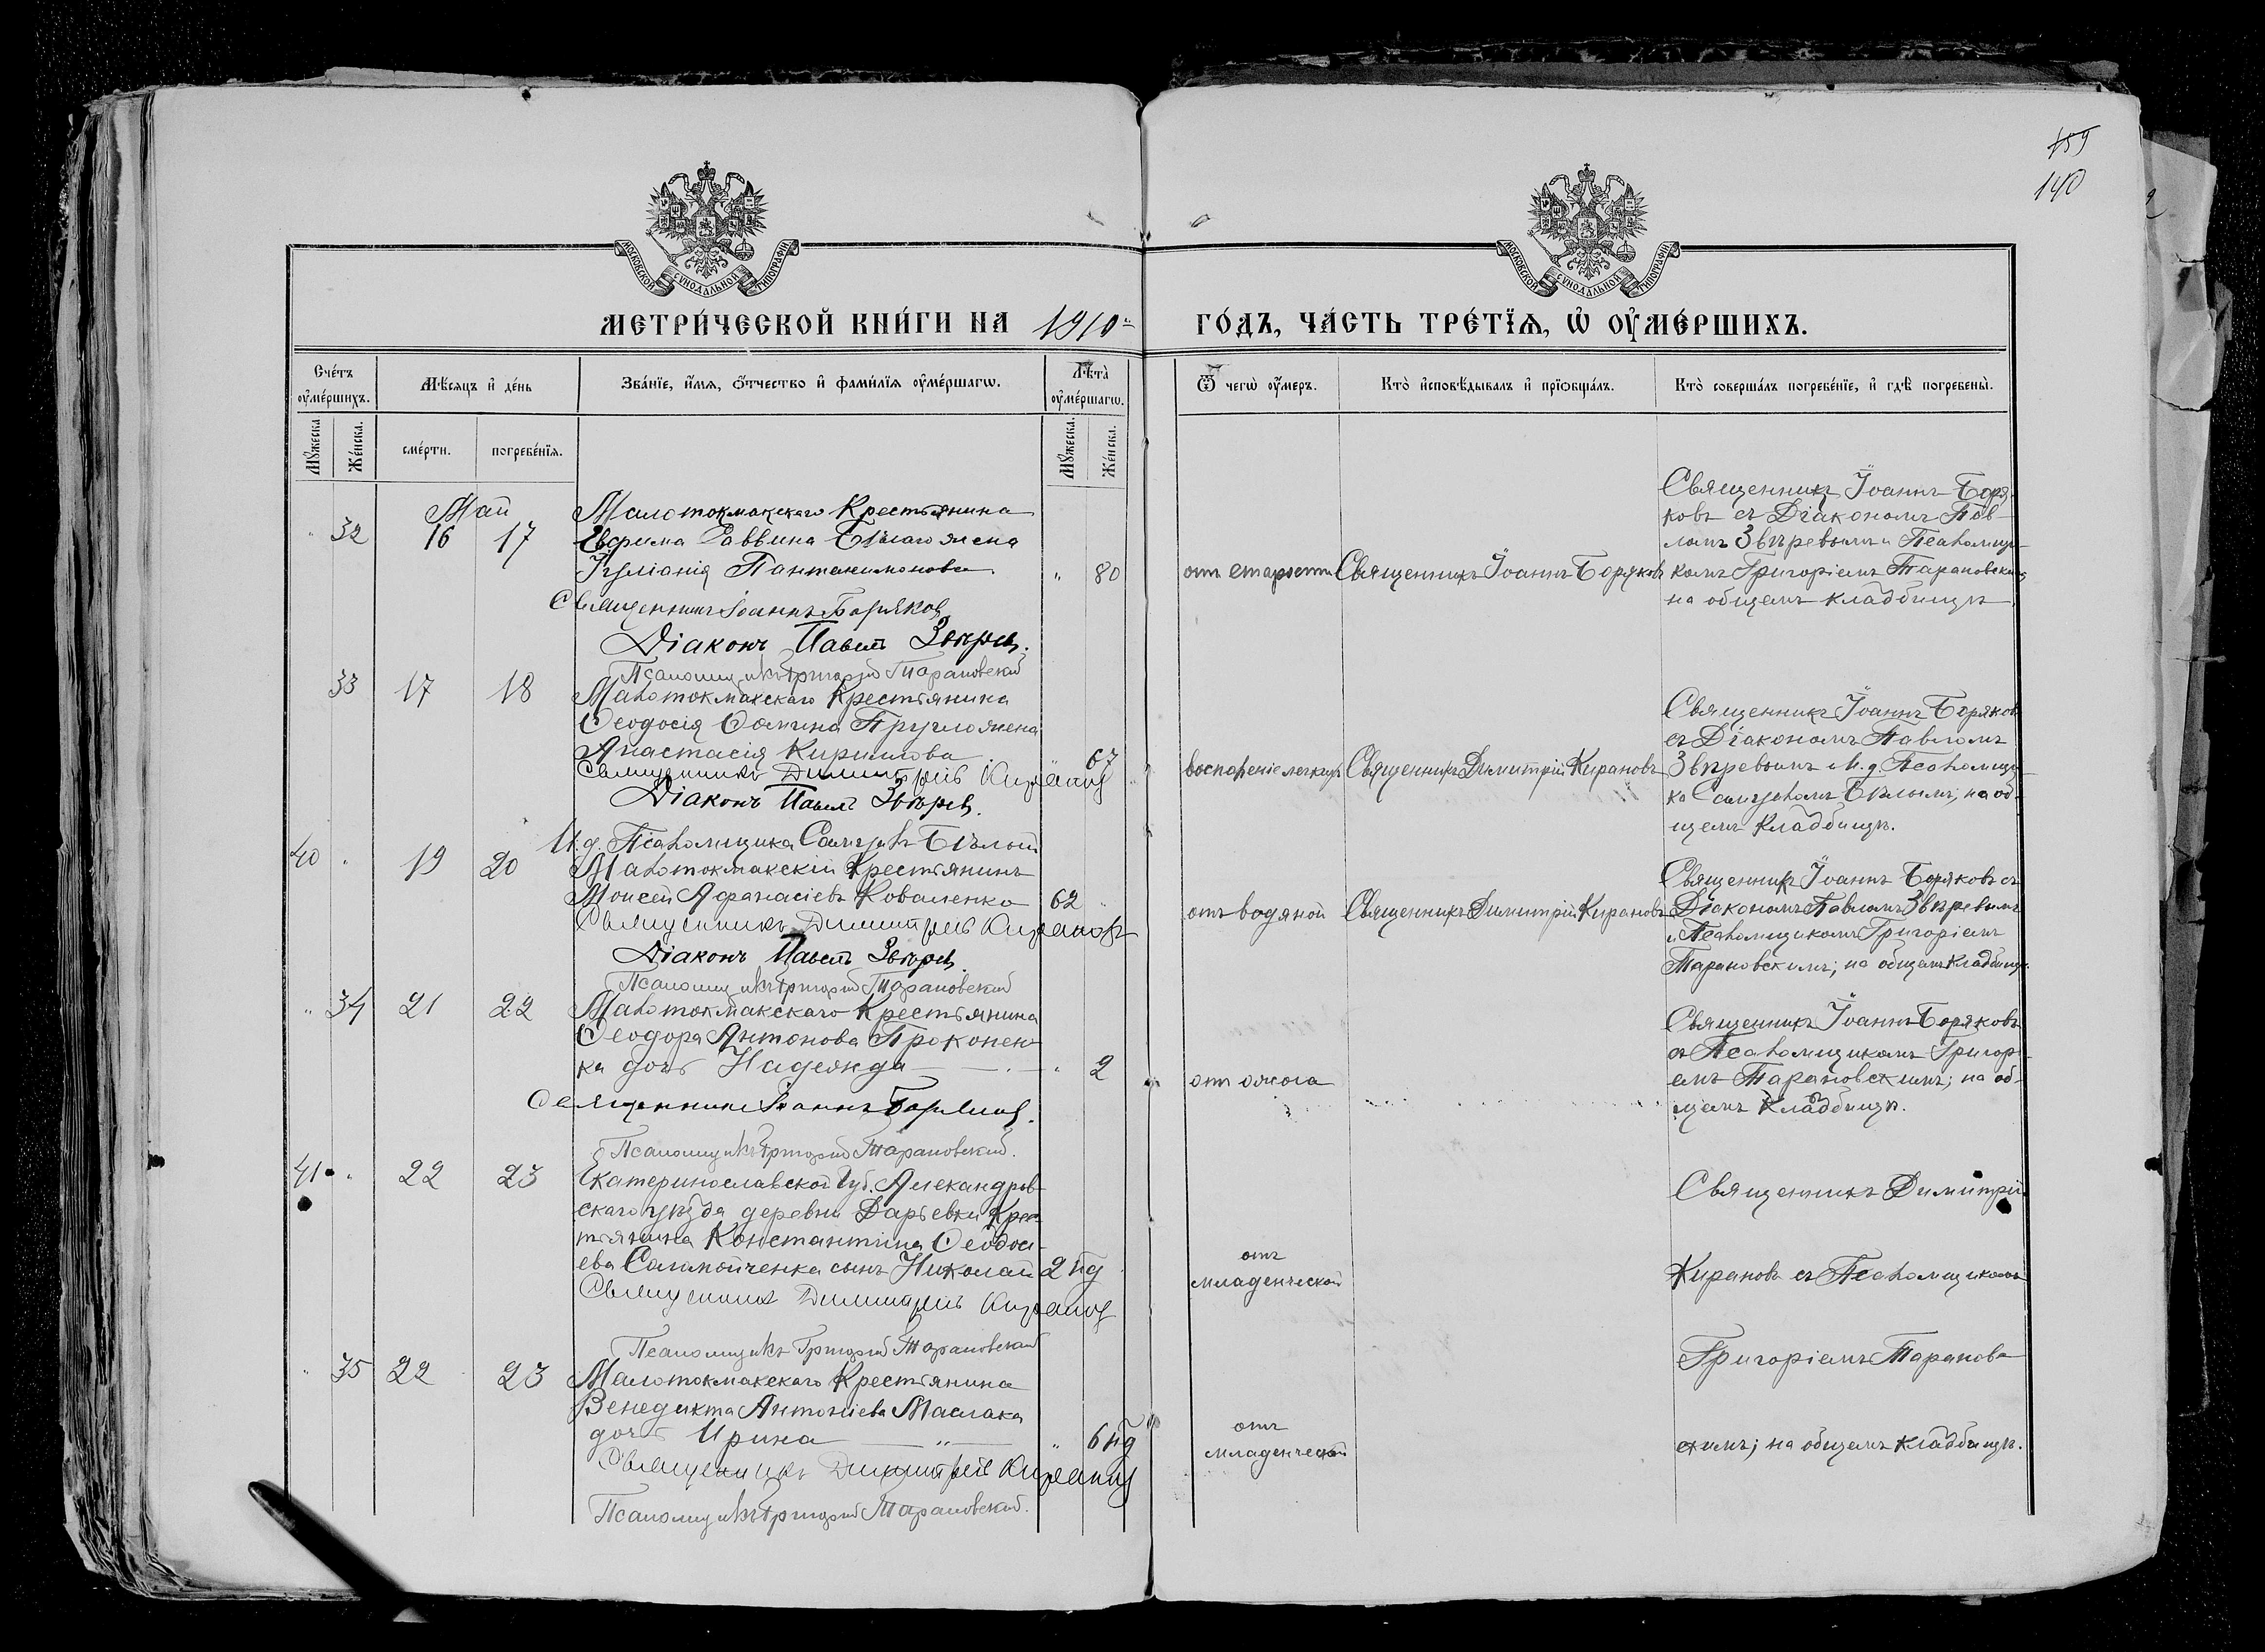 159
140
МОСКОВСКОЙ СѴНОДАЛЬНОЙ ТИПОГРАФІИ
МОСКОВСКОЙ СѴНОДАЛЬНОЙ ТИПОГРАФІИ
МЕТРИ́ЧЕСКОЙ КНИ́ГИ НА 1910 ГО́ДЪ, ЧА́СТЬ ТРЕ́ТЇѦ, Ѡ҆ ОУ҆МЕ́РШИХЪ.
Сче́тъ оу҆ме́ршихъ.
Мѣ́сяцъ и҆ де́нь
Зва́нїе, и҆́мѧ, ѻ҆́тчество и҆ фами́лїѧ оу҆ме́ршагѡ.
Лѣ́та оу҆ме́ршагѡ.
Ѿ чегѡ̀ оу҆́меръ.
Кто̀ и҆сповѣ́дывалъ и҆ прїѻбща́лъ.
Кто̀ соверша́лъ погребе́нїе, и҆ гдѣ̀ погребены̀.
Мꙋ́жеска
Же́нска.
сме́рти.
погребе́нїѧ.
Мꙋ́жеска.
Же́нска.
Май
32 16 17
Малотокмакскаго Крестьянина
Евфима Саввина Бѣлаго жена
Іуліанія Пантелимонова " 80
Священникъ Іоаннъ Боряковъ
Діаконъ Павелъ Звѣревъ.
Псаломщикъ Григорій Тарановскій
отъ старости
Священникъ Іоаннъ Боряковъ
Священникъ Іоаннъ Боря-
ковъ съ Діакономъ Пав-
ломъ Звѣревымъ и Псаломщи-
комъ Григоріемъ Тарановскимъ
на общемъ кладбищѣ.
33 17 18
Малотокмакскаго Крестьянина
Ѳеодосія Ѳомина Кругло жена
Анастасія Кириллова 67
Священникъ Димитрій Кирановъ
Діаконъ Павелъ Звѣревъ.
И. д. Псаломщика Самуилъ Бѣлый
воспаленіе легкихъ
Священникъ Димитрій Кирановъ
Священникъ Іоаннъ Боряковъ
съ Діакономъ Павломъ
Звѣревымъ и И. д. Псаломщи-
ка Самуиломъ Бѣлымъ; на об-
щемъ кладбищѣ.
40 " 19 20
Малотокмакскій Крестьянинъ
Моисей Аѳанасіевъ Коваленко 62
Священникъ Димитрій Кирановъ
Діаконъ Павелъ Звѣревъ.
Псаломщикъ Григорій Тарановскій
отъ водяной
Священникъ Димитрій Кирановъ
Священникъ Іоаннъ Боряковъ съ
Діакономъ Павломъ Звѣревымъ
и Псаломщикомъ Григоріемъ
Тарановскимъ; на общемъ кладбищѣ.
" 34 21 22
Малотокмакскаго Крестьянина
Ѳеодора Антонова Прокопен-
ка дочь Надежда " 2
Священникъ Іоаннъ Боряковъ.
Псаломщикъ Григорій Тарановскій.
отъ ожога
Священникъ Іоаннъ Боряковъ
съ Псаломщикомъ Григорі-
емъ Тарановскимъ; на об-
щемъ кладбищѣ.
41 " 22 23
Екатеринославской Губ. Александров-
скаго уѣзда деревни Дарьевки Крес-
тьянина Константина Ѳеодосі-
ева Саламойченка сынъ Николай 2 нд
Священникъ Димитрій Кирановъ
Псаломщикъ Григорій Тарановскій
отъ
младенческой
Священникъ Димитрій
Кирановъ съ Псаломщикомъ
Григоріемъ Таранов-
скимъ; на общемъ кладбищѣ.
" 35 22 23
Малотокмакскаго Крестьянина
Венедикта Антоніева Маслака
дочь Ирина " 6 нд
Священникъ Димитрій Кирановъ
Псаломщикъ Григорій Тарановскій.
отъ
младенческой